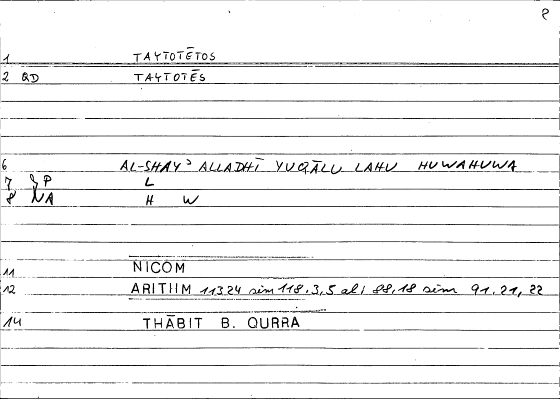 2
1 TAYTOTĒTOS
2 QD TAYTOTĒS
6 AL-SHAYʾ ALLADHĪ YUQĀLU LAHU HUWAHUWA
7 YP L
8 NA H W
11 NICOM
12 ARITHM 113.24 sim 118.3,5 al; 88,18 sim 91.21,22
14 THĀBIT B. QURRA